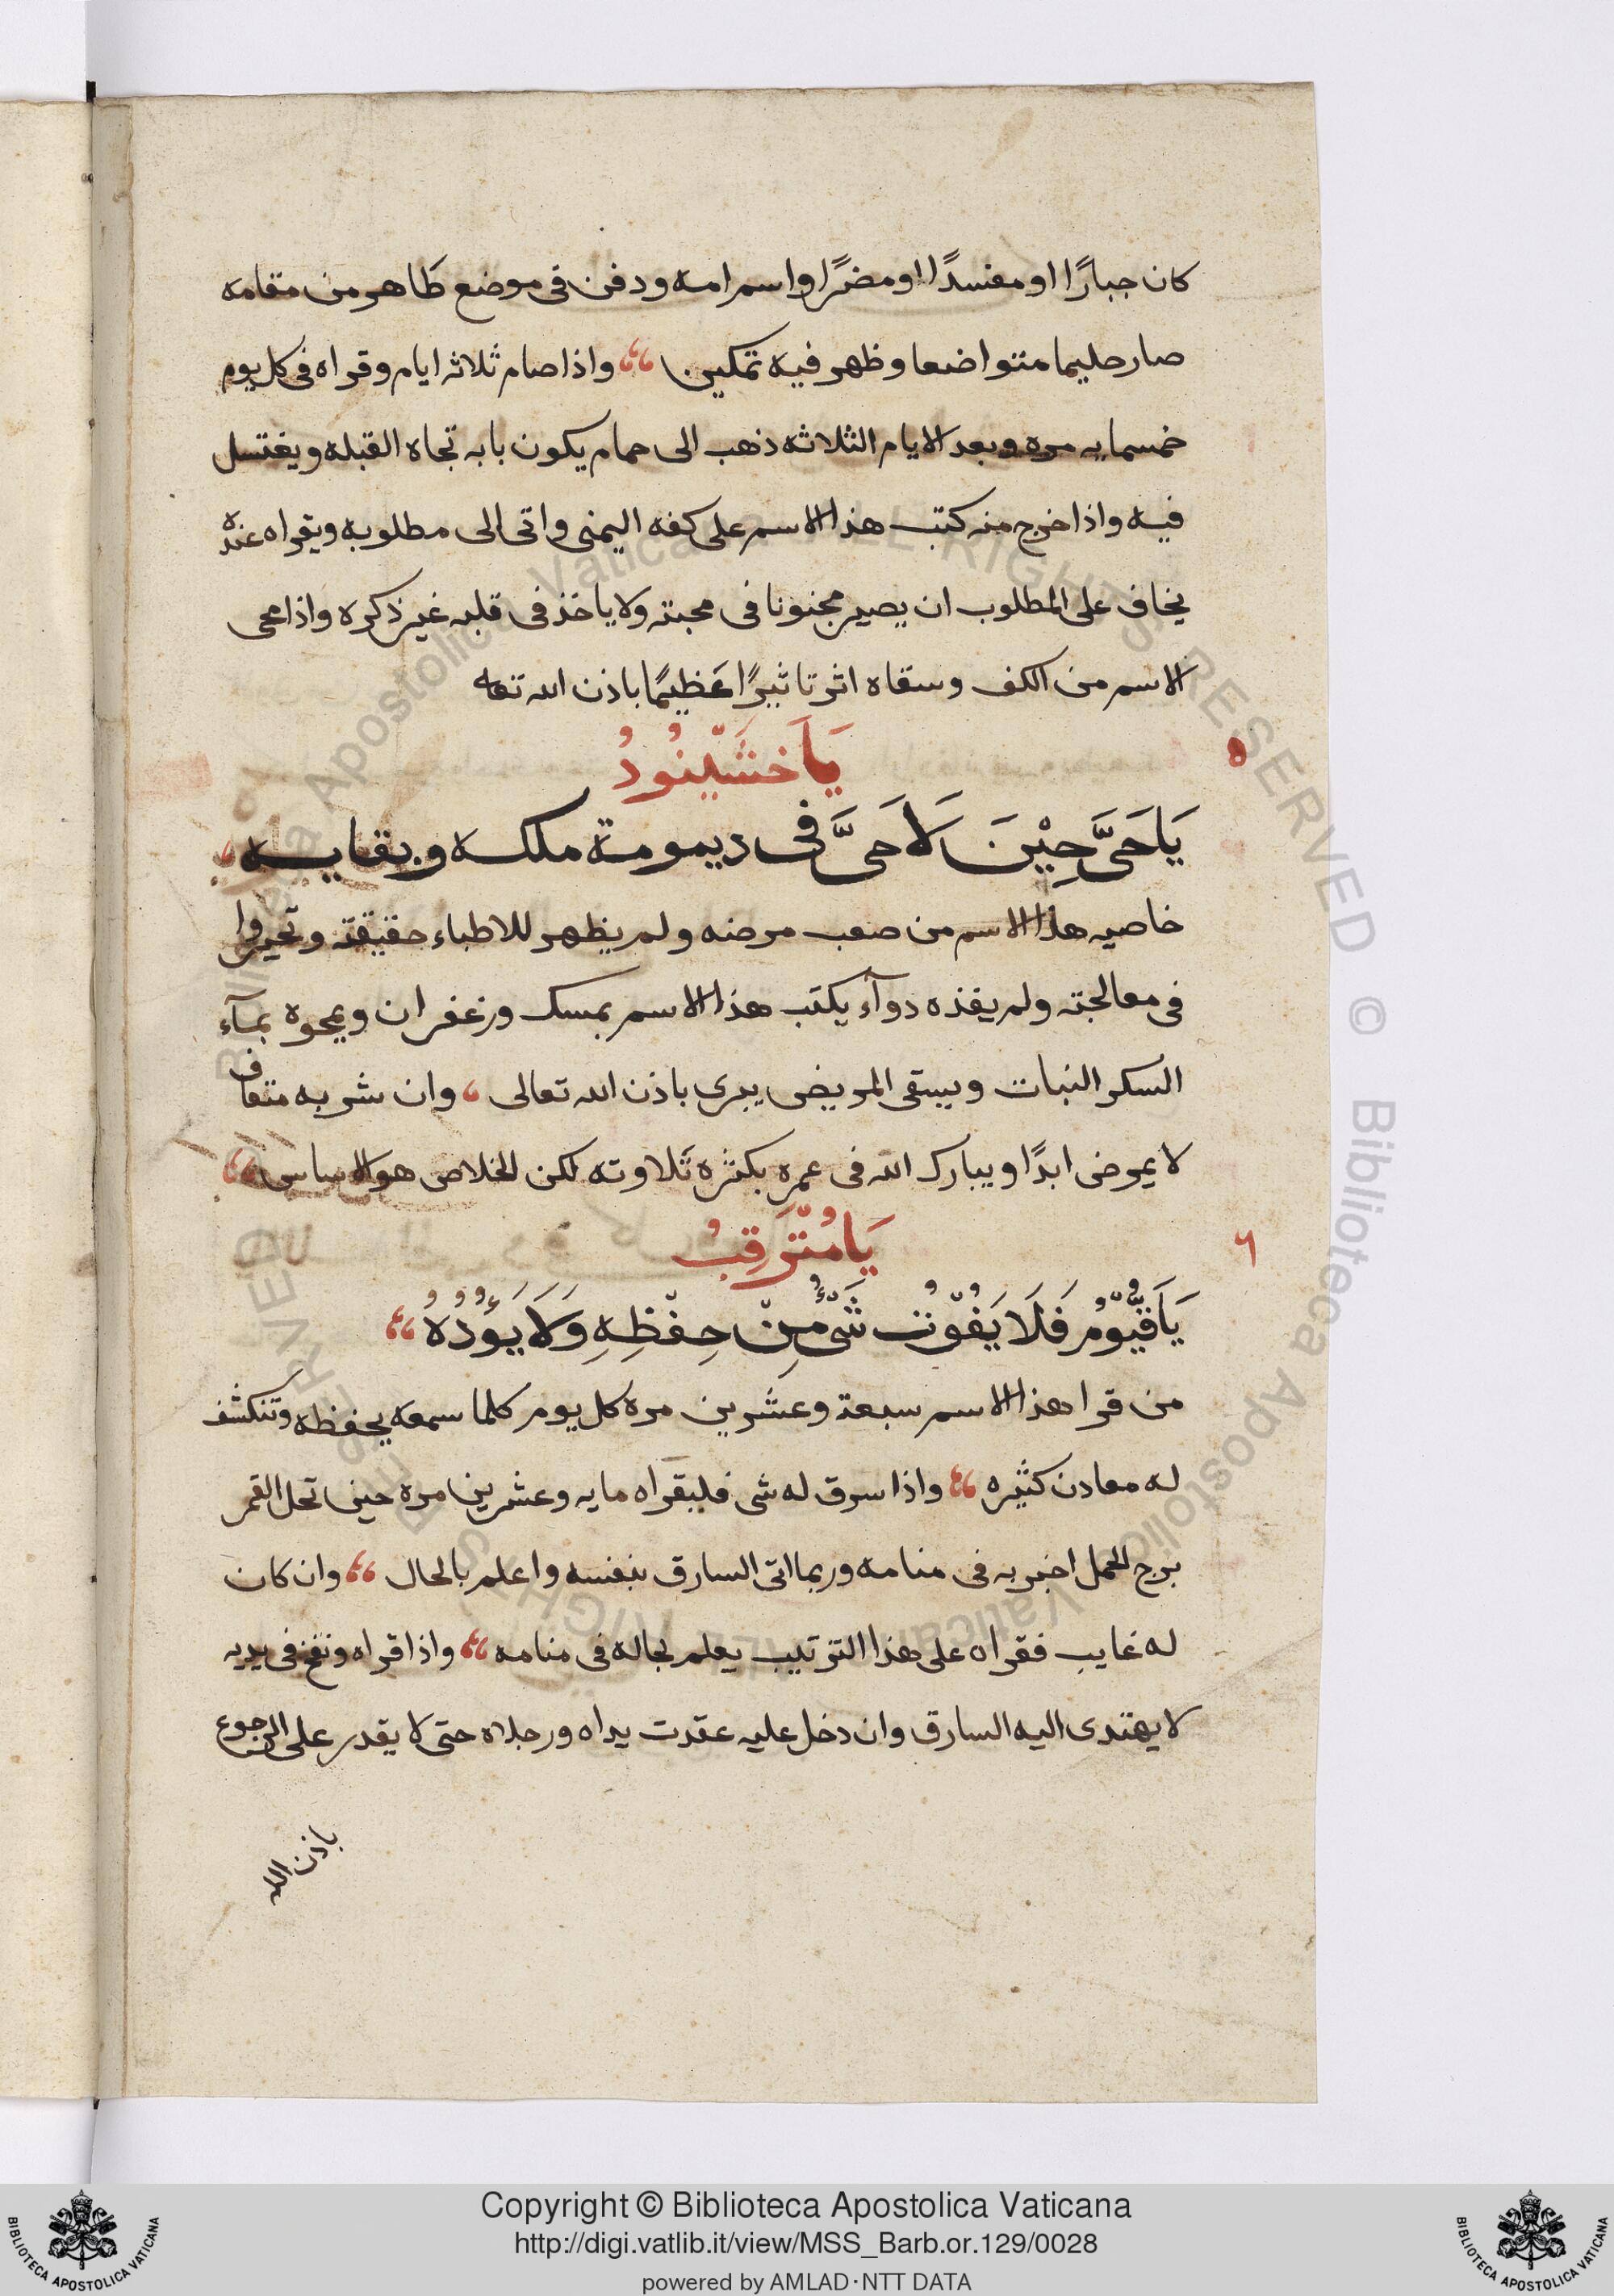 كان جبارًا او مفسدًا او مضرًا واسم امه ودفن فى موضع طاهر من مقامه
صار حليما متواضعا وظهر فيه تمكين واذا صام ثلاثه ايام وقراه فى كل يوم
خمسمايه مره وبعد الايام الثلاثه ذهب الى حمام يكون بابه تجاه القبله ويغتسل
فيه واذا خرج منه كتب هذا الاسم على كفه اليمنى واتى الى مطلوبه ويقراه عنده
يخاف على المطلوب ان يصير مجنونا فى محبته ولا ياخذ فى قلبه غير ذكره واذا محى
الاسم من الكف وسقاه اثر تاثيرًا عَظيمًا باذن الله تعا
٥
يَا حَىَّ حِيْنَ لَا حَىَّ فى ديمومة ملكه وبقايه
خاصيه هذا الاسم من صعب مرضه ولم يظهر للاطباء حقيقته وتحيروا
فى معالجته ولم يفذه دوآء يكتب هذا الاسم بمسك وزعفران ويمحوه بمآء
السكر النبات ويسقى المريض يبرى باذن الله تعالى وان شربه متعاف
لا يمرض ابدًا ويبارك الله فى عمره بكثره ثلاوته لكن الخلاص هو الاساس
٦
يَا مُتَّرَقِبُ
يَا قَيُّوْمُ فَلَا يَفُوْتُ شَىْءٌ مِنْ حِفْظِهِ وَلَا يَؤُدُهُ
من قرا هذا الاسم سبعة وعشرين مره كل يوم كلما سمعه يحفظه وتنكشف
له معادن كثيره واذا سرق له شى فليقراه مايه وعشرين مره حين تحل القمر
برج الحمل اخبر به فى منامه وربما اتى السارق بنفسه واعلم بالحال وان كان
له غايب فقراه على هذا الترتيب يعلم بحاله فى منامه واذا قراه ونفخ فى يديه
لا يهتدى اليه السارق وان دخل عليه عقدت يداه ورجلاه حتى لا يقدر على الرجوع
باذن الله
Copyright © Biblioteca Apostolica Vaticana
http://digi.vatlib.it/view/MSS_Barb.or.129/0028
powered by AMLAD·NTT DATA
BIBLIOTECA APOSTOLICA VATICANA
BIBLIOTECA APOSTOLICA VATICANA